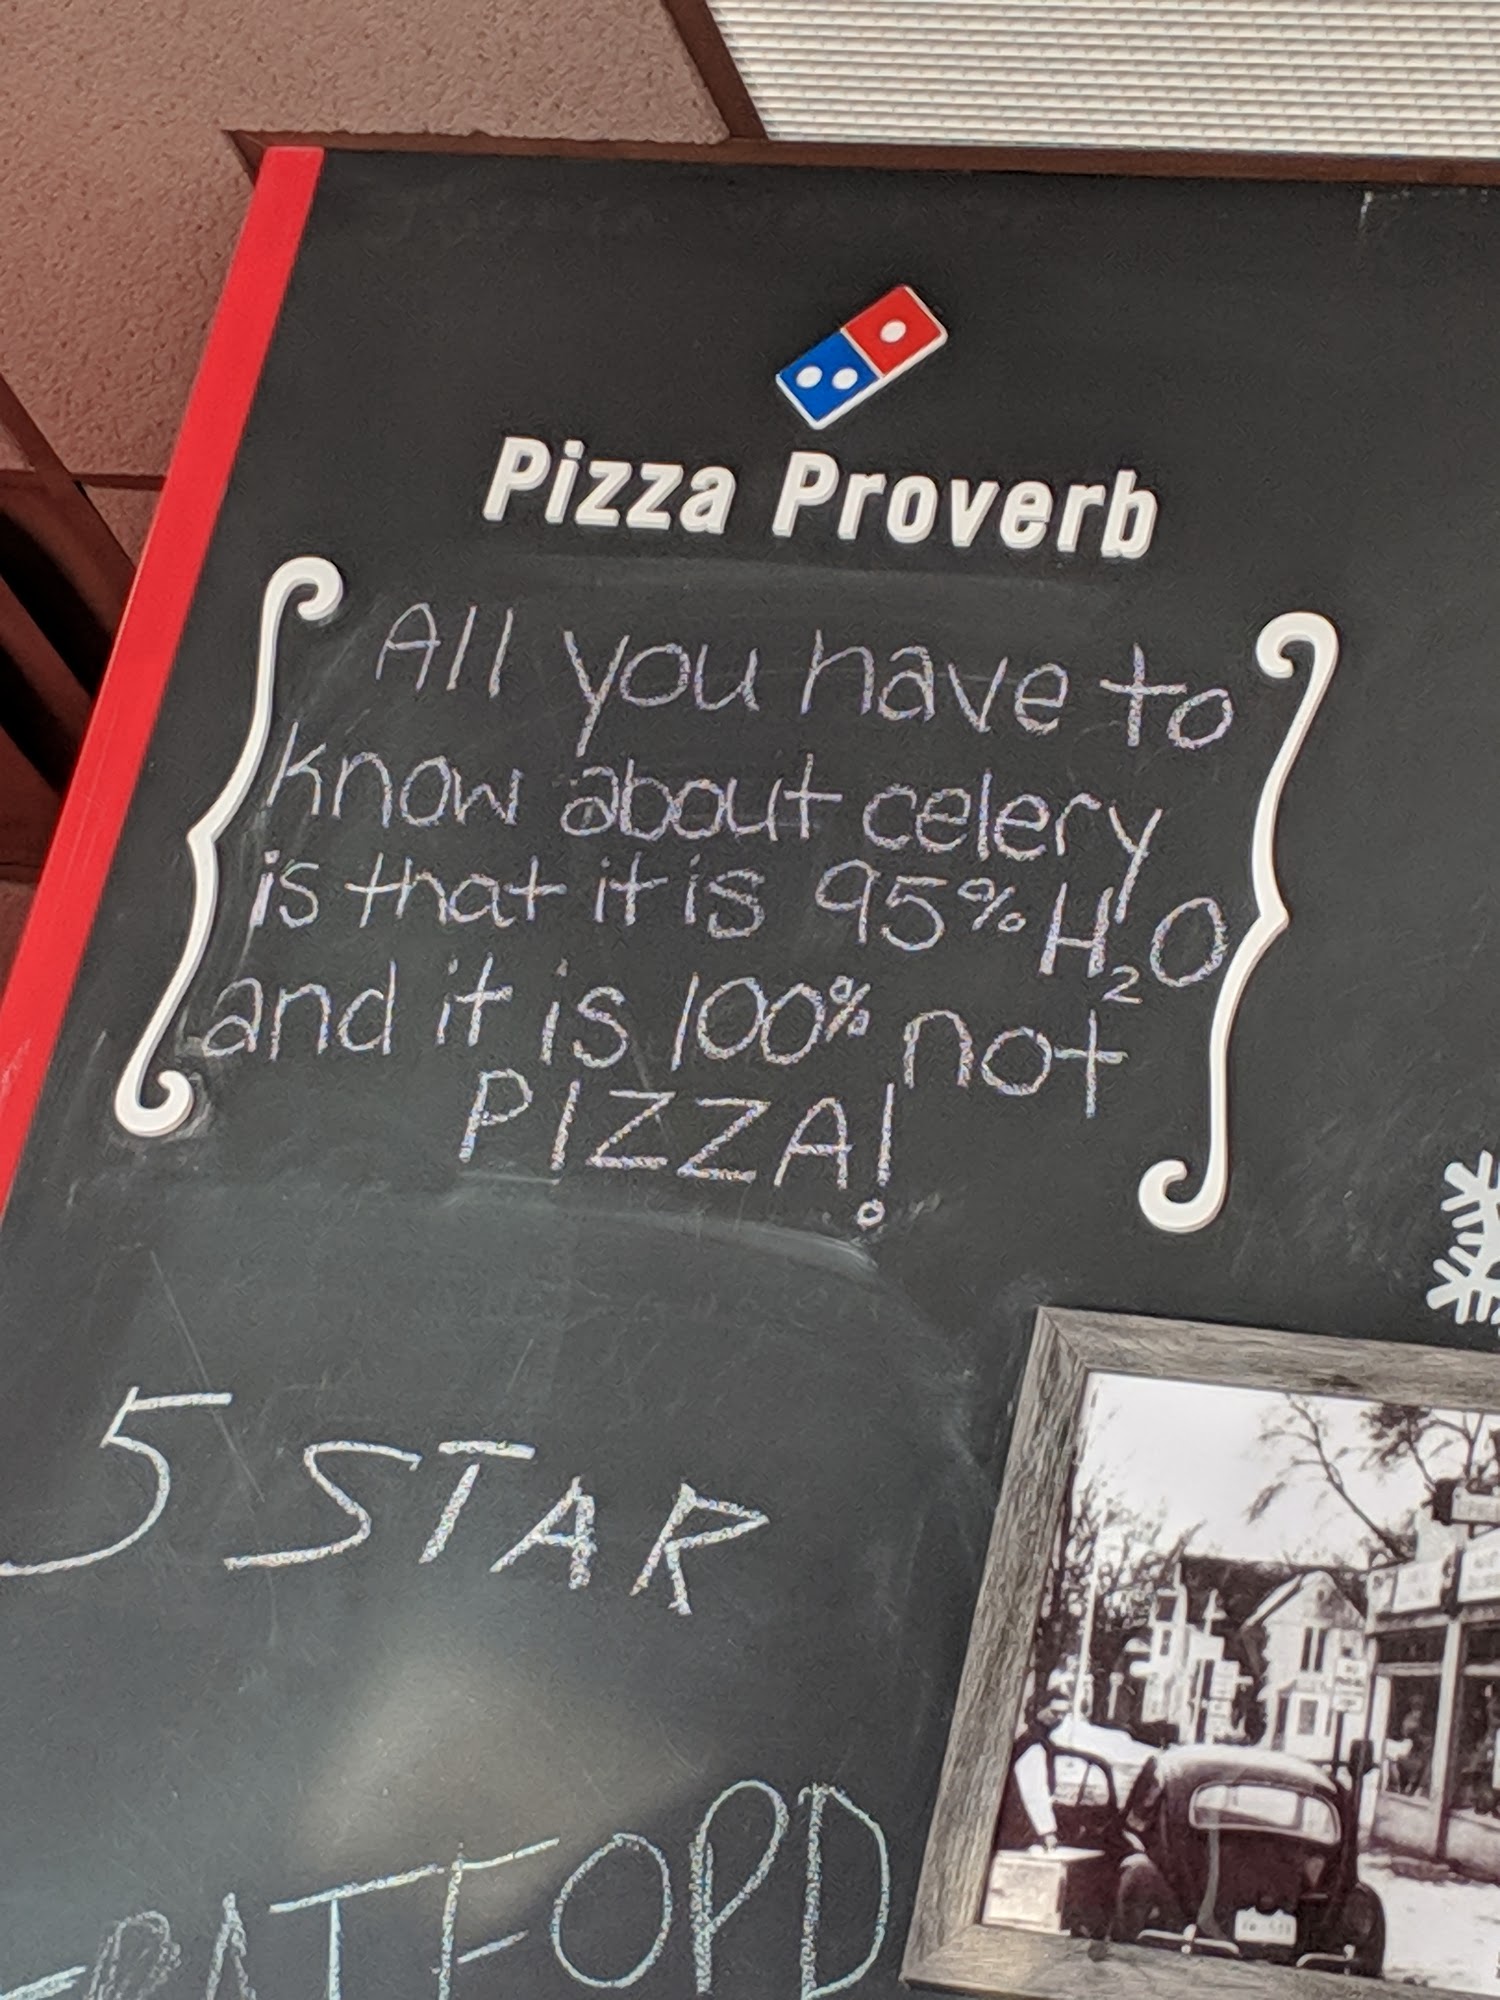 Pizza Proverb
All you have to
know about celery
is that it is 95% H₂O
and it is 100% not
PIZZA!
5 STAR